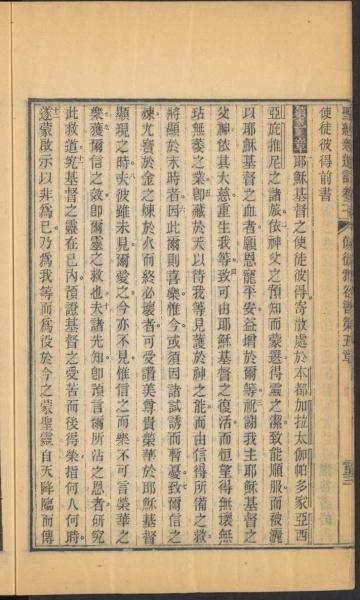 使徒彼得前書
第壹章耶穌基督之使徒彼得寄散處於本都加拉太伽帕多家亞西
亞庇推尼之諸旅依神父之預知而蒙選得靈之潔致能順服而被灑
以耶穌基督之血者願恩寵平安益增於爾等祝謝我主耶穌基督之
父神依其大慈重生我等致可由耶穌基督之復活而恒望得無壞無
玷無萎之業即藏於天以待我等見護於神之能而由信得所備之救
將顯於末時者因此爾則喜樂惟今或須因諸試誘而暫憂致爾信之
煉尤寶於金之煉於火而終必壞者可受讚美尊貴榮華於耶穌基督
顯現之時夫彼雖未見爾愛之今亦不見惟信之而樂不可言榮華之
樂獲爾信之效即爾靈之救也夫諸先知即預言爾所沾之恩者研究
此救道究基督之靈在己內預證基督之受苦而後得榮指何人何時
遂蒙啟示以非為己乃為我等而為役於今之蒙聖靈自天降臨而傳